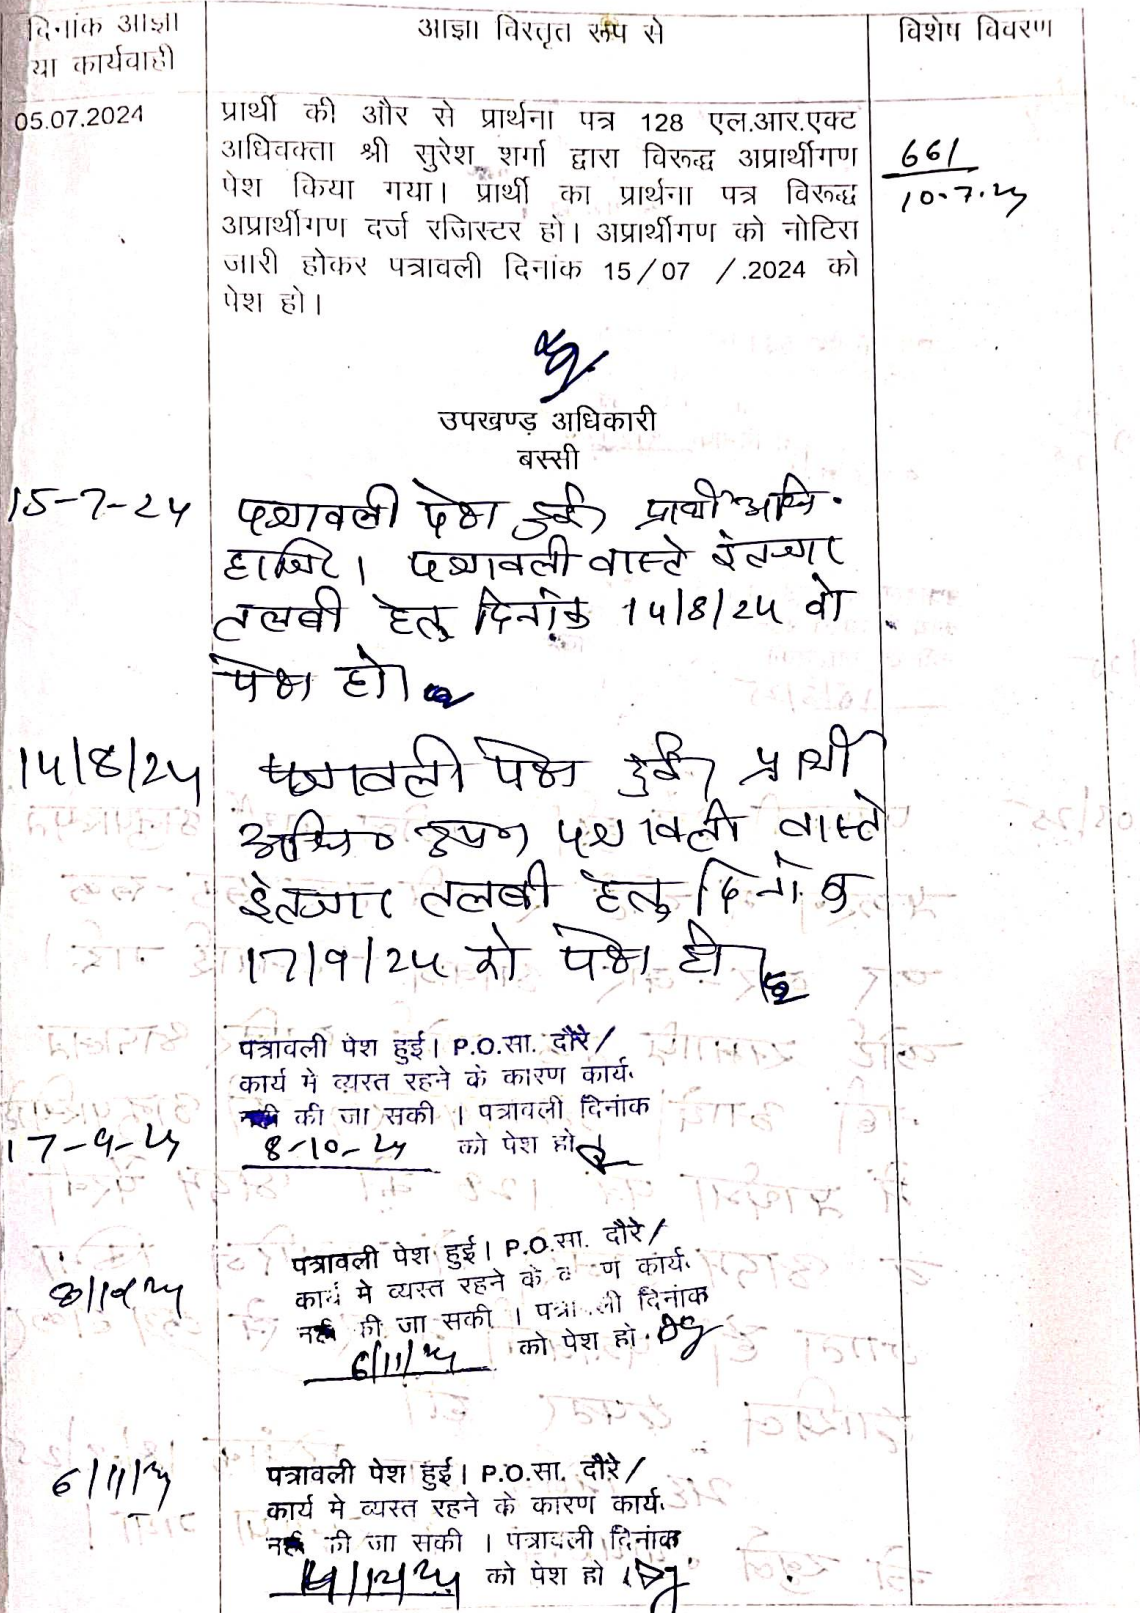 दिनांक आज्ञा
या कार्यवाही
आज्ञा विस्तृत रूप से
विशेष विवरण
05.07.2024
प्रार्थी की और से प्रार्थना पत्र 128 एल.आर.एक्ट
अधिवक्ता श्री सुरेश शर्मा द्वारा विरूद्ध अप्रार्थीगण
पेश किया गया। प्रार्थी का प्रार्थना पत्र विरूद्ध
अप्रार्थीगण दर्ज रजिस्टर हो। अप्रार्थीगण को नोटिस
जारी होकर पत्रावली दिनांक 15/07 /.2024 को
पेश हो।
661
10-7-24
उपखण्ड अधिकारी
बस्सी
15-7-24
पत्रावली पेश हुई। प्रार्थी अधि.
हाजिर। पत्रावली वास्ते इंतजार
तलबी हेतु दिनांक 14/8/24 को
पेश हो।
14/8/24
पत्रावली पेश हुई। प्रार्थी
अधि० उप० पत्रावली वास्ते
इंतजार तलबी हेतु दिनांक
17/9/24 को पेश हो।
पत्रावली पेश हुई। P.O.सा. दौरे/
कार्य मे व्यस्त रहने के कारण कार्य.
नही की जा सकी । पत्रावली दिनांक
17-9-24
8-10-24 को पेश हो
पत्रावली पेश हुई। P.O.सा. दौरे/
8/10/24
कार्य मे व्यस्त रहने के कारण कार्य.
नही की जा सकी । पत्रावली दिनांक
6/11/24 को पेश हो.
6/11/24
पत्रावली पेश हुई। P.O.सा. दौरे/
कार्य मे व्यस्त रहने के कारण कार्य.
नही की जा सकी । पत्रावली दिनांक
को पेश हो